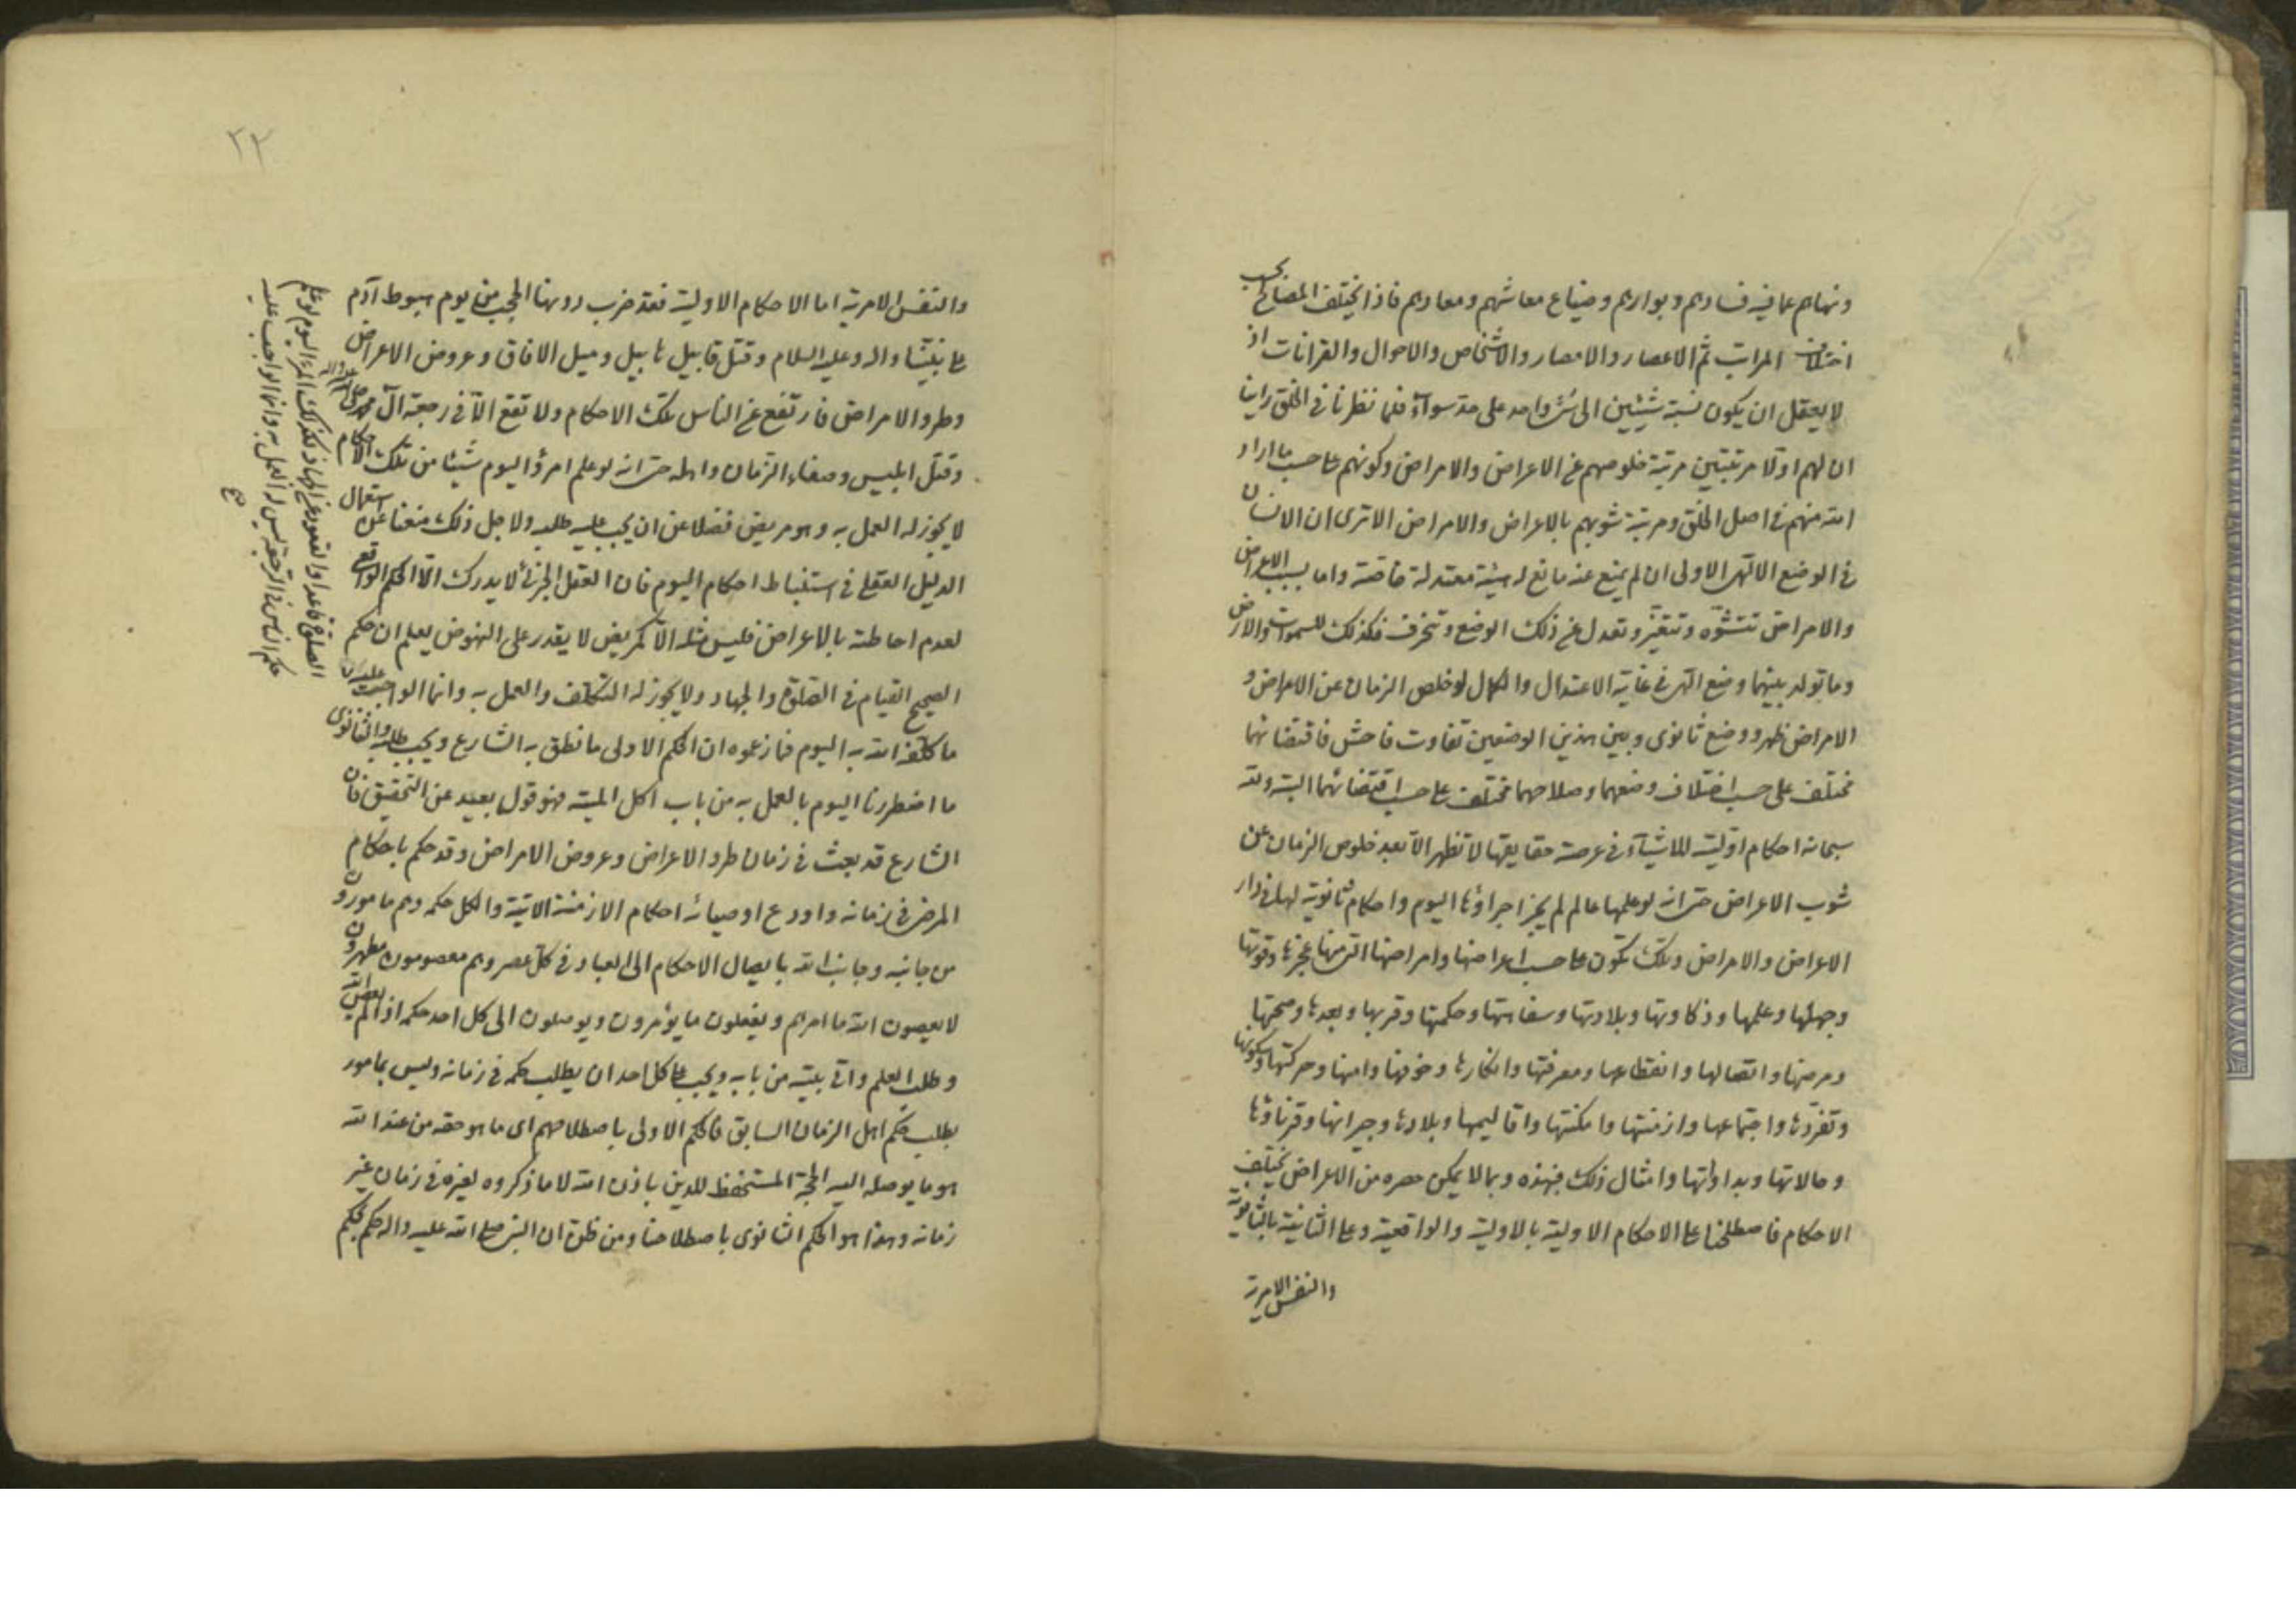 ونهاهم عما فيه فسادهم وبوارهم وضياع معاشهم ومعادهم فاذا يختلف المصالح بحسب
اختلاف المراتب ثم الاعصار والامصار والاشخاص والاحوال والقرانات اذ
لا يعقل ان يكون نسبة شيئين الى شئ واحد على حد سواء فلما نظرنا فى الخلق راينا
ان لهم اولا مرتبتين مرتبة خلوصهم عن الاعراض والامراض وكونهم على حسب ما اراد
الله منهم فى اصل الخلق ومرتبة شوبهم بالاعراض والامراض الا ترى ان الانسان
فى الوضع الالهى الاولى ان لم يمنع عنه مانع له هيئة معتدلة خاصة واما بسبب الاعراض
والامراض تتشوه وتتغير وتعدل عن ذلك الوضع وتنحرف فكذلك للسموات والارض
وما تولد بينهما وضع الهى فى غاية الاعتدال والكمال لو خلص الزمان عن الاعراض و
الامراض ظهر ووضع ثانوى وبين هذين الوضعين تفاوت فاحش فاقتضائهما
مختلف على حسب اختلاف وضعهما وصلاحهما مختلف على حسب اقتضائهما البتة ولله
سبحانه احكام اولية للاشياء فى عرصة حقايقها لا تظهر الا بعد خلوص الزمان عن
شوب الاعراض حتى انه لو علمها عالم لم يجز اجراؤها اليوم واحكام ثانوية لها فى دار
الاعراض والامراض وتلك تكون على حسب اعراضها وامراضها التى منها عجزها وقوتها
وجهلها وعلمها وذكاوتها وبلادتها وسفاهتها وحكمتها وقربها وبعدها وصحتها
ومرضها واتصالها وانقطاعها ومعرفتها وانكارها وخوفها وامنها وحركتها وسكونها
وتفردها واجتماعها وازمنتها وامكنتها واقاليمها وبلادها وجيرانها وقرناؤها
وحالاتها وبداواتها وامثال ذلك فبهذه وبما لا يمكن حصره من الاعراض يختلف
الاحكام فاصطلحنا على الاحكام الاولية بالاولية والواقعية وعلى الثانية بالثانوية
والنفس الامرية
٢٢
والنفس الامرية اما الاحكام الاولية فقد ضرب دونها الحجب من يوم هبوط آدم
على نبينا واله وعليه السلام وقتل قابيل هابيل وميل الافاق وعروض الاعراض
وطرو الامراض فارتفع عن الناس تلك الاحكام ولا تقع الا فى رجعة آل محمد
وقتل ابليس وصفاء الزمان واهله حتى انه لو علم امرؤ اليوم شيئا من تلك الاحكام
لا يجوز له العمل به وهو مريض فضلا عن ان يجب عليه طلبه ولاجل ذلك منعنا عن استعمال
الدليل العقلى فى استنباط احكام اليوم فان العقل الجزئى لا يدرك الا الحكم الواقعى
لعدم احاطته بالاعراض فليس مثله الا كمريض لا يقدر على النهوض يعلم ان حكم
الصحيح القيام فى الصلوة والجهاد ولا يجوز له التكلف والعمل به وانما الواجب عليه
ما كلفه الله به اليوم فما زعموه ان الحكم الاولى ما نطق به الشارع ويجب طلبه والثانوى
ما اضطررنا اليوم بالعمل به من باب اكل الميتة فهو قول بعيد عن التحقيق فان
الشارع قد بعث فى زمان طرو الاعراض وعروض الامراض وقد حكم باحكام
المرضى فى زمانه واودع اوصيائه احكام الازمنة الاتية والكل حكمه وهم مامورون
من جانبه وجانب الله بايصال الاحكام الى العباد فى كل عصر وهم معصومون مطهرون
لا يعصون الله ما امرهم ويفعلون ما يؤمرون ويوصلون الى كل احد حكمه اذا لم يعص الله
وطلب العلم واتى بيته من بابه ويجب على كل احد ان يطلب حكمه فى زمانه وليس بمامور
بطلب حكم اهل الزمان السابق فالحكم الاولى باصطلاحهم اى ما هو حقه من عند الله
هو ما يوصله اليه الحجة المستحفظ للدين باذن الله لا ما ذكروه لغيره فى زمان غير
زمانه وهذا هو الحكم الثانوى باصطلاحنا ومن ظن ان النبى صلى الله عليه واله حكم بحكم
الصلوة قاعدا والقعود عن الجهاد فكذلك المرء اليوم لو علم
حكم الناس فى الرجعة ليس له العمل به وانما الواجب عليه